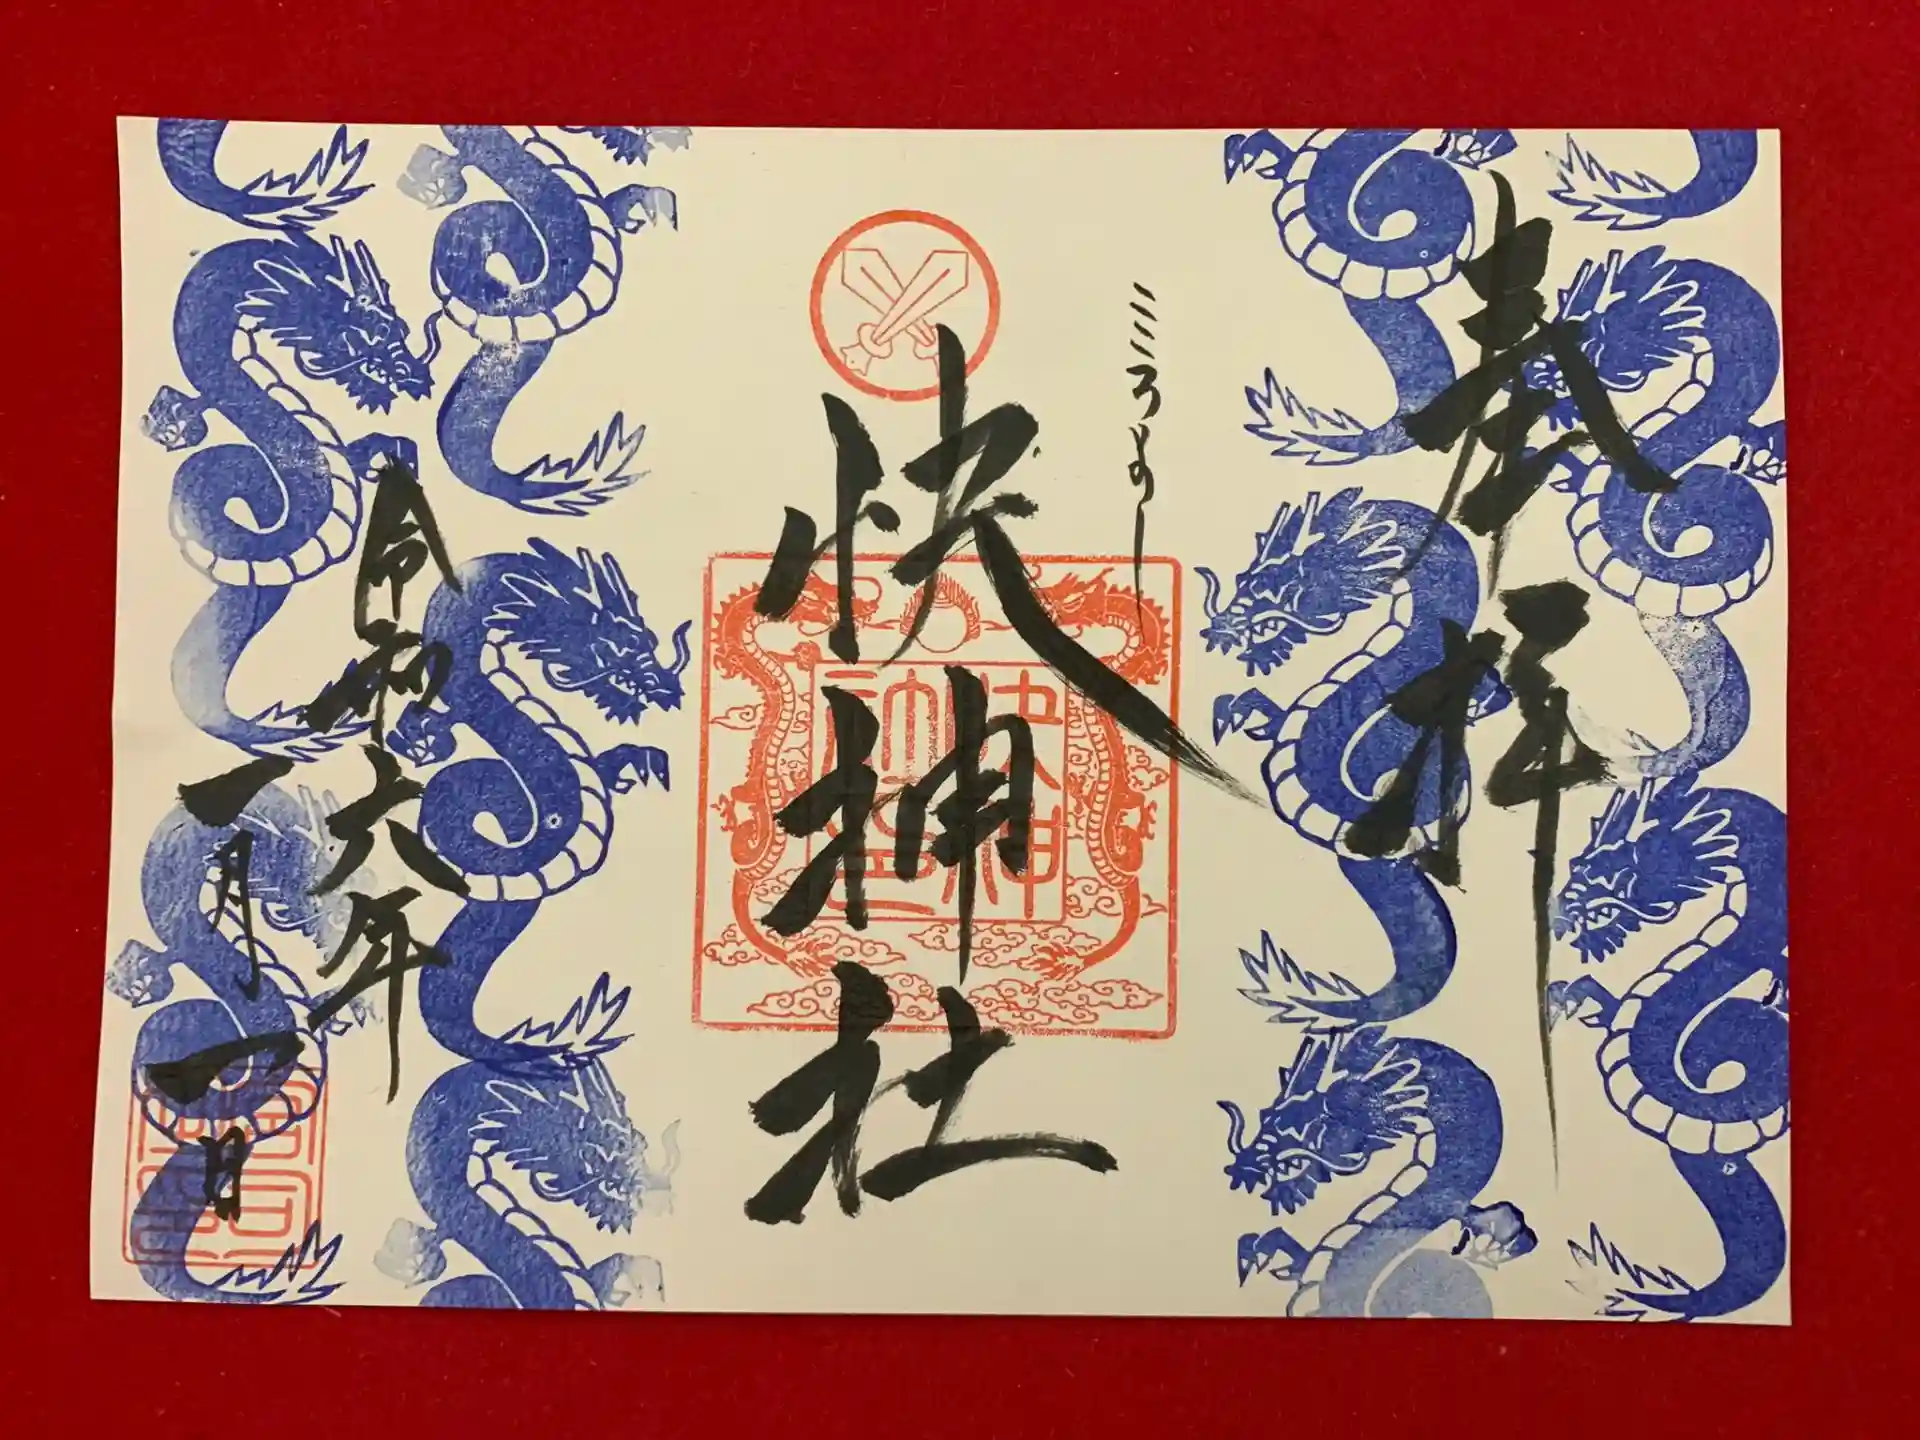 奉拝
こころよし
快神社
令和六年
一月一日